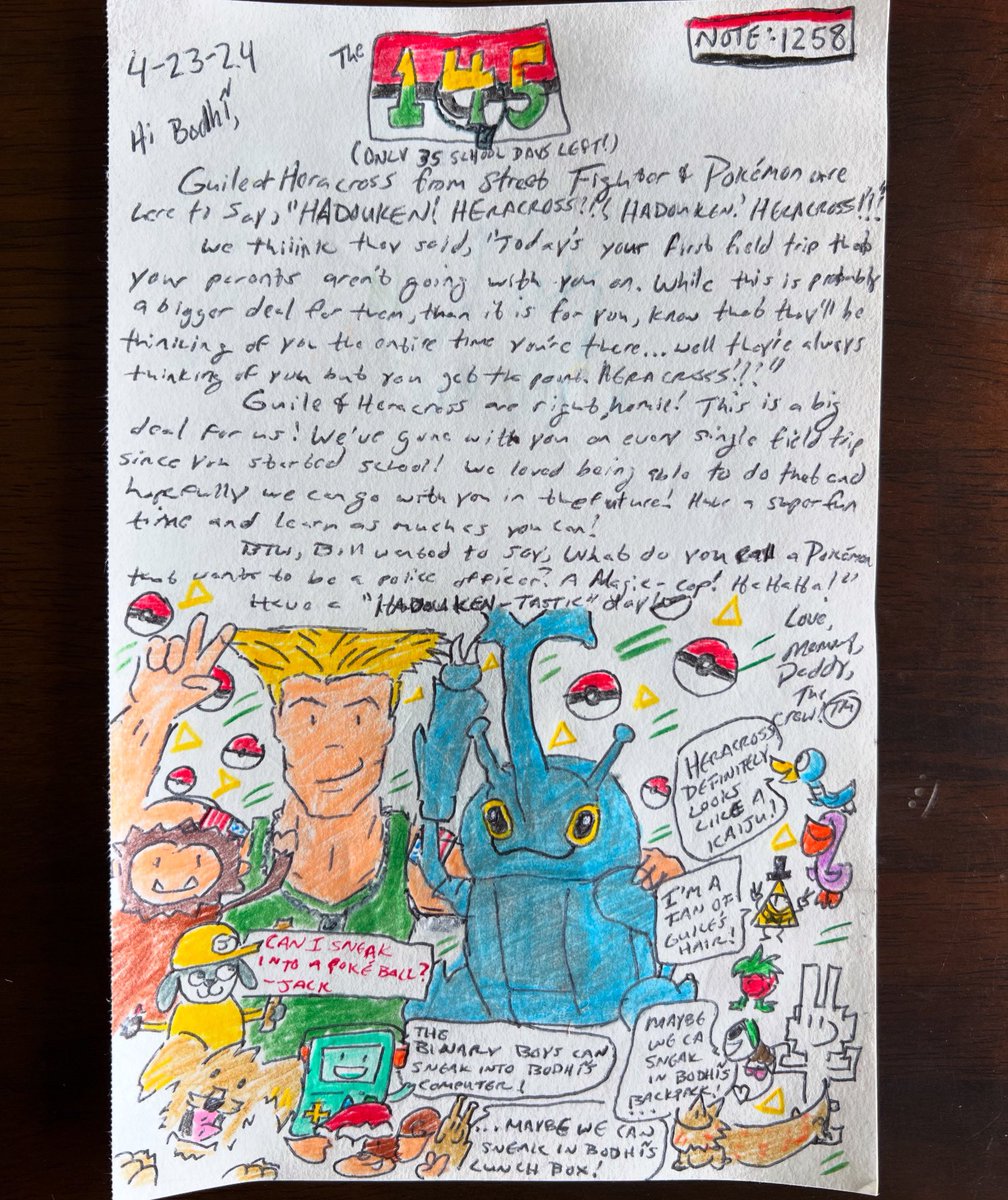 4-23-24
The 145
NOTE: 1258
Hi Bodhi,
(ONLY 35 SCHOOL DAYS LEFT!)
Guile & Heracross from Street Fighter & Pokémon are
here to say, "HADOUKEN! HERACROSS!!! HADOUKEN! HERACROSS!!!"
We thiiink they said, "Today's your first field trip that
your parents aren't going with you on. While this is probably
a bigger deal for them, than it is for you, know that they'll be
thinking of you the entire time you're there... well they're always
thinking of you but you get the point. HERACROSS!!!"
Guile & Heracross are right, homie! This is a big
deal for us! We've gone with you on every single field trip
since you started school! We loved being able to do that and
hopefully we can go with you in the future! Have a super fun
time and learn as much as you can!
BTW, Bill wanted to say, What do you call a Pokémon
that wants to be a police officer? A Magic-cop! HaHaHa!"
Have a "HADOUKEN-TASTIC" day!
Love,
Mommy,
Daddy,
The
Crew! TM
HERACROSS
DEFINITELY
LOOKS
LIKE A
KAIJU!
I'M A
FAN OF
GUILE'S
HAIR!
CAN I SNEAK
INTO A POKÉ BALL?
-JACK
THE
BINARY BOYS CAN
SNEAK INTO BODHI'S
COMPUTER!
MAYBE
WE CA
SNEAK
IN BODHI'S
BACKPACK!
...
...MAYBE WE CAN
SNEAK IN BODHI'S
LUNCH BOX!